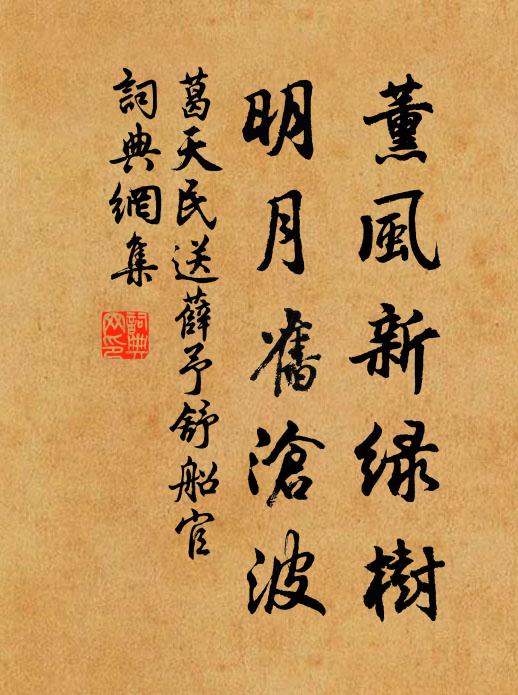 薰風新綠樹
明月舊滄波
葛天民送薛予舒船官
詞典網集
詞典
网印